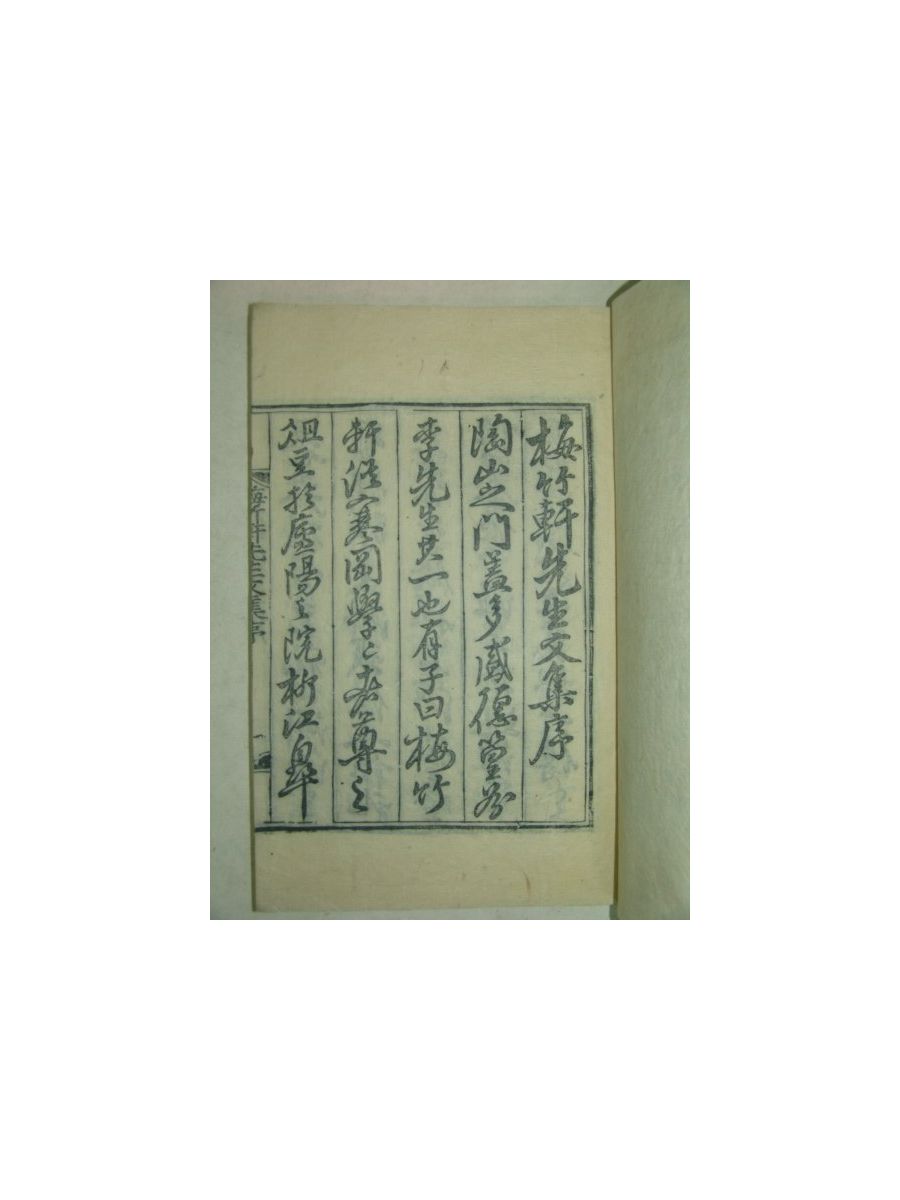 梅竹軒先生文集序
陶山之門盖多盛德篁谷
李先生其一也有子曰梅竹
軒從寒岡學〻者尊之
俎豆於廬陽之院柳江皐
梅竹軒先生文集序